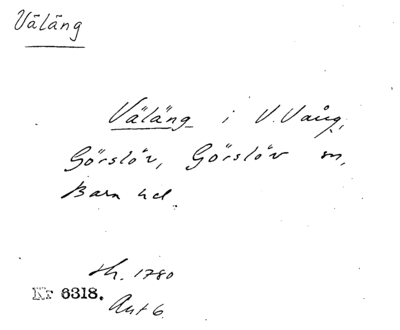 Väläng
Väläng i V. Vång,
Görslöv, Görslöv sn,
Bara hd.
sk. 1780
Nr 6318.
Akt 6